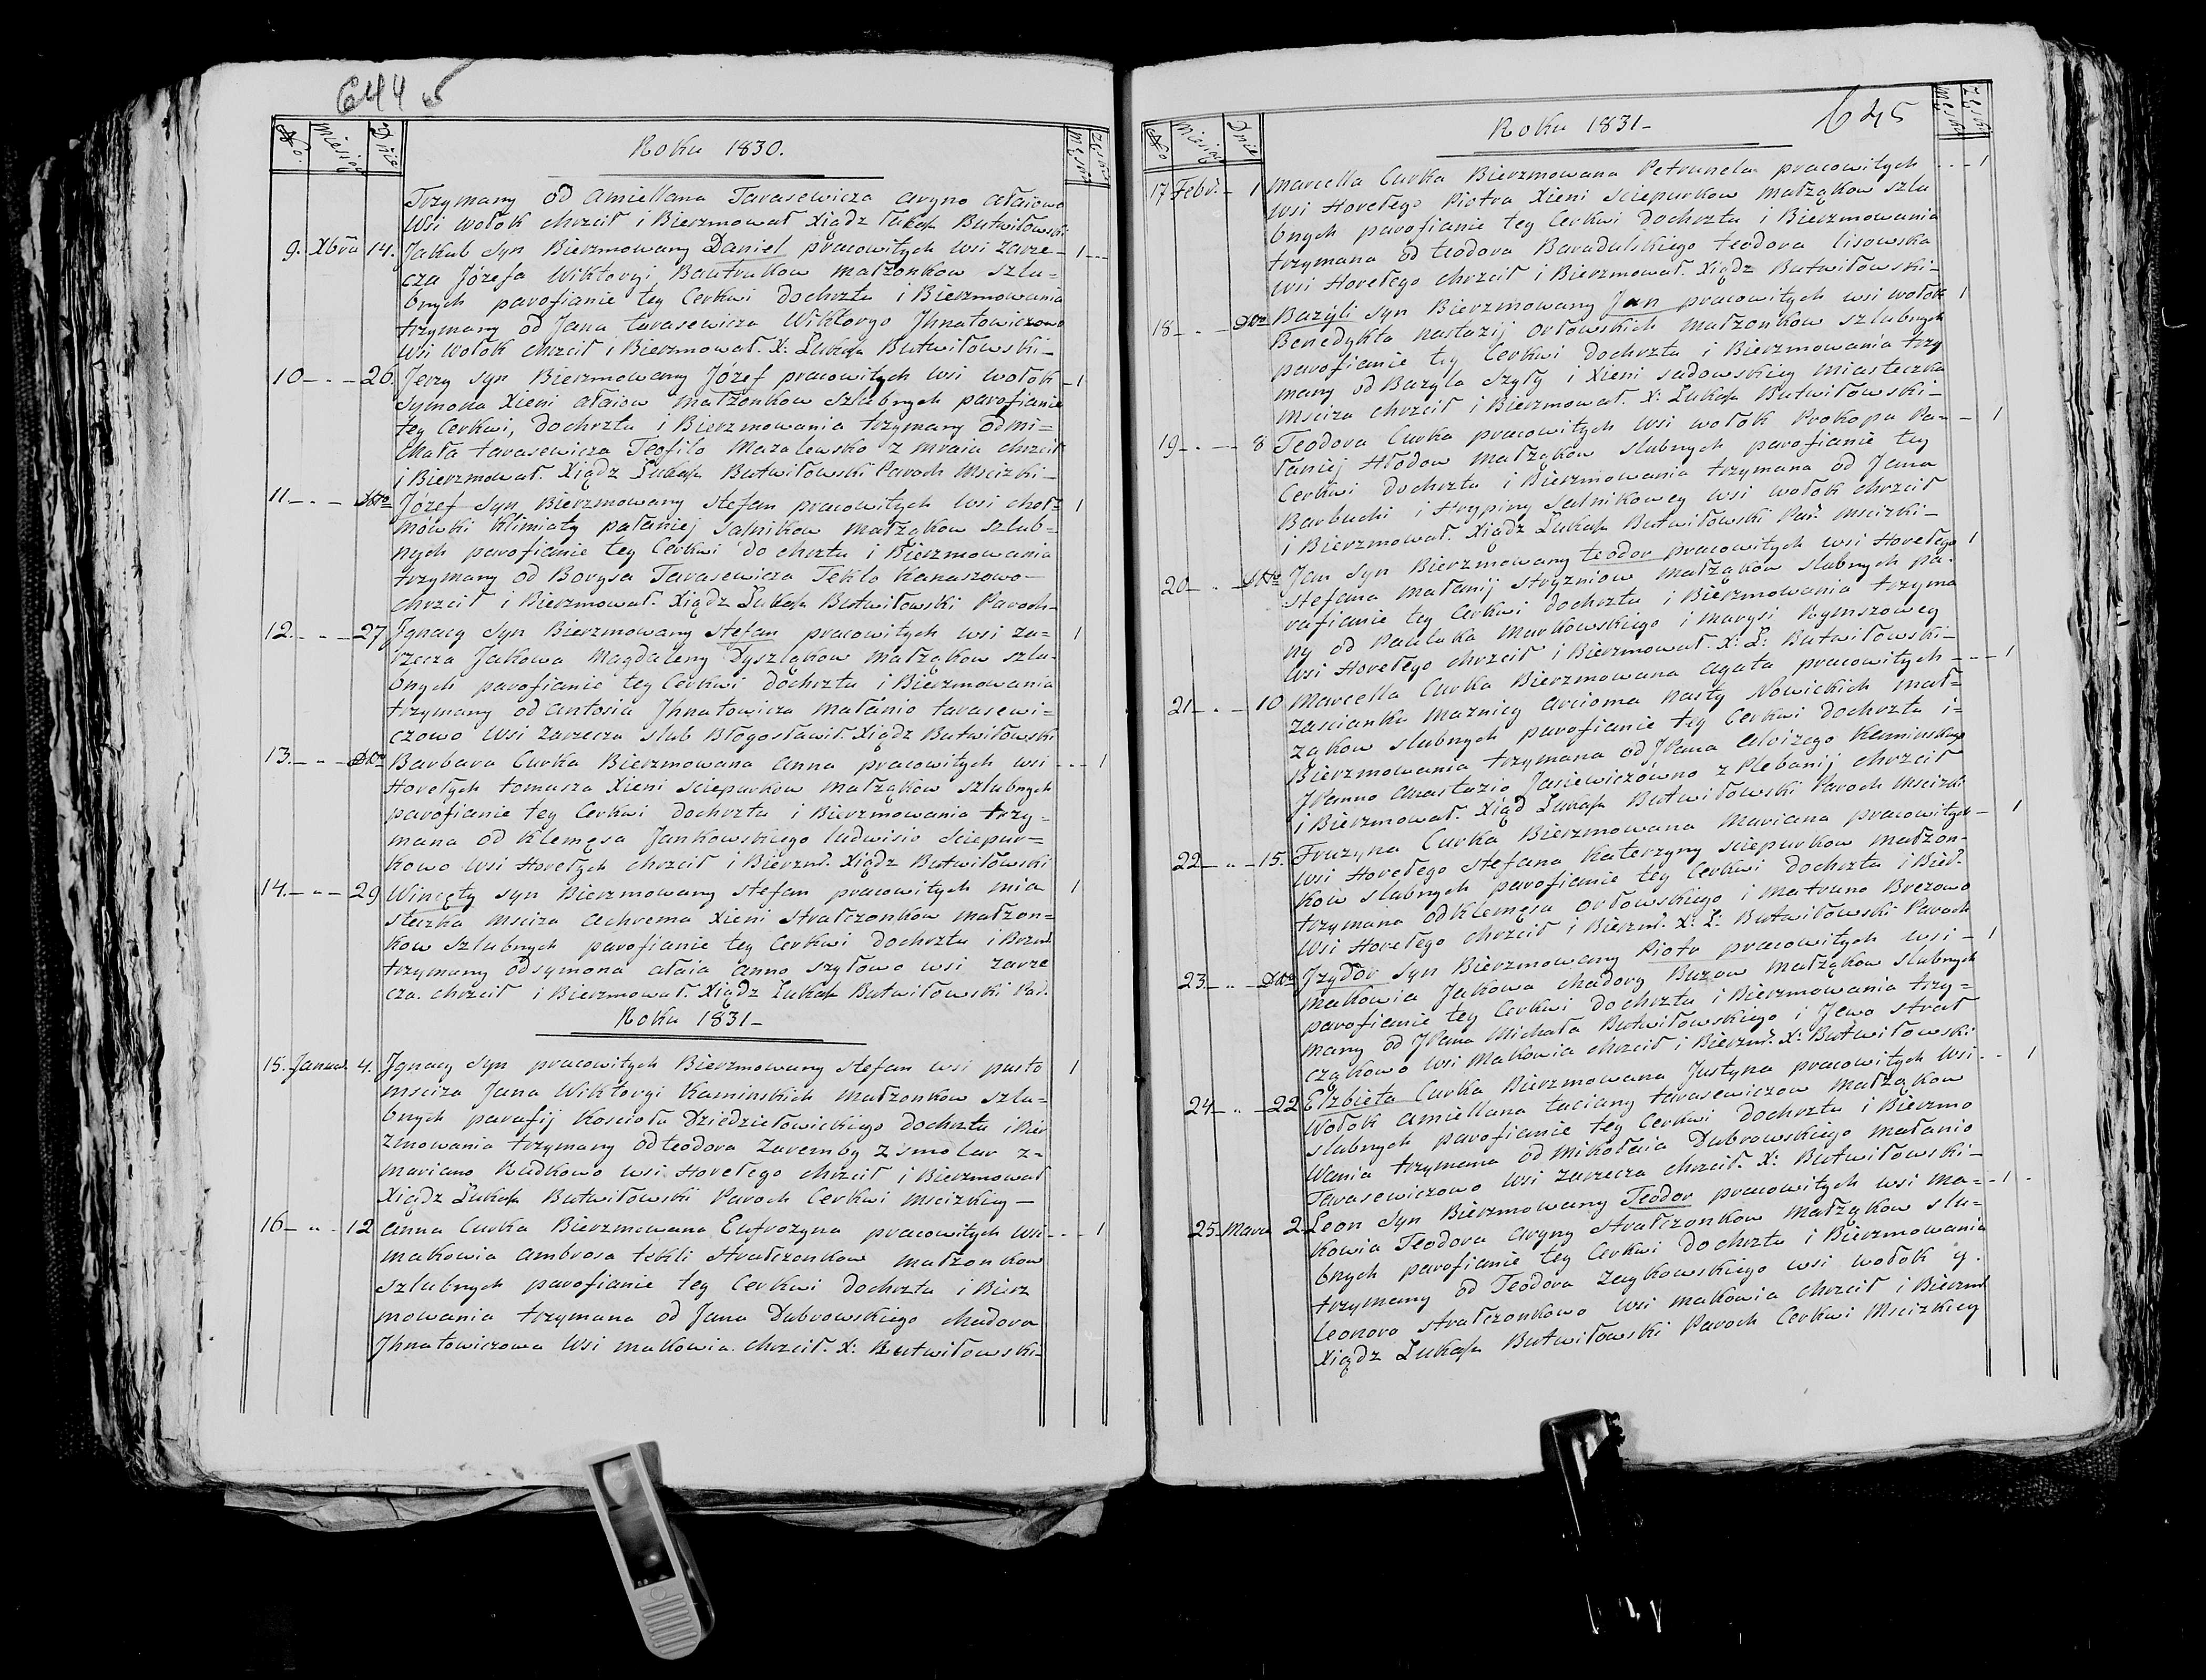 644
No. Miesiąc Dnie
Męsk: Żeńsk:
Roku 1830.
Trzymany od Amiellana Tarasewicza Aryno ałaiowo
Wsi wołok chrzcił i Bierzmował Xiądz Łukasz Butwiłowski
9. Xbra 14. Jakub Syn Bierzmowany Daniel pracowitych wsi Zarze- 1
cza Józefa Wiktoryi Bautrukow małżonkow szlu-
bnych parofianie tey Cerkwi dochrztu i Bierzmowania
trzymany od Jana tarasewicza Wiktoryo Jhnatowiczowo
Wsi wołok chrzcił i Bierzmował. X: Łukasz Butwiłowski-
10 - - 26. Jerzy Syn Bierzmowany Józef pracowitych wsi wołok - 1
Symona Xieni ałaiow małżonkow szlubnych parofianie
tey Cerkwi, dochrztu i Bierzmowania trzymany od mi=
chała tarasewicza Teofilo Mazalewsko z mraia chrzcił
i Bierzmował. Xiądz Łukasz Butwiłowski Paroch Mscizki-
11 - - Ditto Józef Syn Bierzmowany Stefan pracowitych wsi choł= 1
mowki Klimiaty pałaniej Salnikow małżąkow szlub=
nych parofianie tey Cerkwi do chrztu i Bierzmowania
trzymany od Borysa Tarasewicza Teklo Kanaszowo-
chrzcił i Bierzmował. Xiądz Łukasz Butwiłowski Paroch-
12. - - 27 Jgnacy Syn Bierzmowany Stefan pracowitych wsi za= 1
rzecza Jakowa Magdaleny Dyszląkow małżąkow szlu-
bnych parofianie tey Cerkwi dochrztu i Bierzmowania
trzymany od Antosia Jhnatowicza małanio tarasewi=
czowo wsi zarzecza slub Błogosławił. Xiądz Butwiłowski
13. - - Ditto Barbara Curka Bierzmowana Anna pracowitych wsi - - - 1
Horełych tomasza Xieni Sciepurkow małżąkow szlubnych
parofianie tey Cerkwi dochrztu i Bierzmowania trzy-
mana od Klemęsa Jankowskiego ludwisio Sciepur=
kowo wsi Horełych chrzcił i Bierzmł. Xiądz Butwiłowski
14. - - 29 Wincęty Syn Bierzmowany Stefan pracowitych mia 1
steczka Msciza Achrema Xieni Strałczonkow małżon=
kow szlubnych parofianie tey Cerkwi dochrztu i Brzmł.
trzymany odsymona ałaia anno szyłowo wsi zarze
cza. chrzcił i Bierzmował. Xiądz Łukasz Butwiłowski Par.
Roku 1831-
15. Januar. 4. Jgnacy Syn pracowitych Bierzmowany Stefan wsi pusto 1
msciza Jana Wiktoryi Kaminskich małżonkow szlu=
bnych parafij Koscioła Dziedziłowickiego dochrztu i Bier
zmowania trzymany od teodora zaremby z smolar z-
mariano Rudkowo wsi Horełego chrzcił i Bierzmował
Xiądz Łukasz Butwiłowski Paroch Cerkwi Mscizkiey-
16 - - 12 Anna Curka Bierzmowana Eufrozyna pracowitych wsi - - - 1
makowia Ambrosa tekli Strałczonkow małżonkow
szlubnych parofianie tey Cerkwi dochrztu i Bierz
mowania trzymana od Jana Dubrowskiego Chadora
Jhnatowiczowa Wsi makowia. chrzcił. X: Butwiłowski-
645
No Miesiąc Dnie
Męsk: Żeńsk:
Roku 1831-
17 Febr. - 1 Marcella Curka Bierzmowana Petrunela pracowitych - - - 1
wsi Horełego Piotra Xieni Sciepurkow małżąkow szlu
bnych parofianie tey Cerkwi dochrztu i Bierzmowania
trzymana od teodora Baradulskiego teodora lisowska
wsi Horełego chrzcił i Bierzmował. Xiądz Butwiłowski-
18 - - Ditto Bazyli Syn Bierzmowany Jan pracowitych wsi wołok 1
Benedykta nastazij orłowskich małżonkow szlubnych
parofianie tey Cerkwi dochrztu i Bierzmowania trzy
many od Bazyla szyły i Xieni sadowskiey miasteczka
msciza chrzcił i Bierzmował. X: Łukasz Butwiłowski-
19 - - 8 Teodora Curka pracowitych wsi wołok Prokopa Pa- - 1
łaniej Hłodow małżąkow slubnych parofianie tey
Cerkwi dochrztu i Bierzmowania trzymana od Jana
Barbuchi i Hrypiny Salnikowey wsi wołok chrzcił
i Bierzmował. Xiądz Łukasz Butwiłowski Par. Mscizki-
20 - - Ditto Jan Syn Bierzmowany teodor pracowitych wsi Horełego 1
Stefana małanij Stryzniow małżąkow slubnych pa-
rafianie tey Cerkwi dochrztu i Bierzmowania trzyma
ny od Pauluka Markowskiego i marysi Rymszowey
wsi Horełego chrzcił i Bierzmował. X: Ł: Butwiłowski-
21 - - 10 Marcella Curka Bierzmowana agata pracowitych - - - 1
zascianka maznicy arcioma nasty Nowickich mał=
żąkow slubnych parofianie tey Cerkwi dochrztu i=
Bierzmowania trzymana od JPana Aloizego Kaminskiego
JPanno Anastazio Jasiewiczówno z Plebanij chrzcił
i Bierzmował. Xiąd Łukasz Butwiłowski Paroch Mscizki
22 - - 15. Fruzyna Curka Bierzmowana Mariana pracowitych - 1
wsi Horełego Stefana Katerzyny Sciepurkow małżon-
kow slubnych parofianie tey Cerkwi dochrztu i Bier.
trzymana odklemęsa orłowskiego i Matruno Brezowo
wsi Horełego chrzcił i Bierzmł. X: Ł: Butwiłowski Paroch
23 - - Ditto Jzydor Syn Bierzmowany Piotr pracowitych wsi - 1
makowia Jakowa Chadory Buzow małżąkow slubnych
parofianie tey Cerkwi dochrztu i Bierzmowania trzy=
many od JPana Michała Butwiłowskiego i Jewo Strał
cząkowo wsi Makowia chrzcił i Bierzmł. X: Butwiłowski
24 - - 22 Elzbieta Curka Bierzmowana Justyna pracowitych wsi - - 1
Wołok Amiellana taciany tarasewiczow małżąkow
slubnych parofianie tey Cerkwi dochrztu i Bierzmo
wania trzymana od Mikołaia Dubrowskiego małanio
Tarasewiczowo wsi zarzecza chrzcił. X: Butwiłowski-
25. Mara 2 Leon Syn Bierzmowany Teodor pracowitych wsi Ma- - 1
kowia Teodora Aryny Strałczonkow małżąkow slu-
bnych parofianie tey Cerkwi dochrztu i Bierzmowania
trzymany od Teodora Zaykowskiego wsi wołok y.
leonoro Strałczonkowo wsi makowia chrzcił i Bierzmł
Xiądz Łukasz Butwiłowski Paroch Cerkwi Mscizkiey